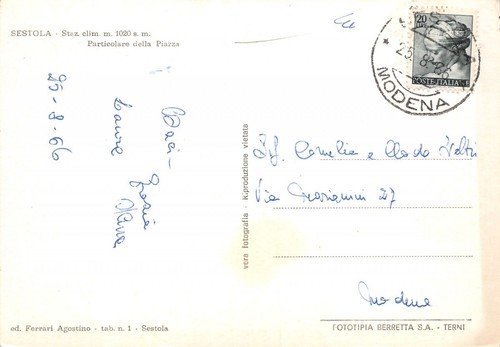 SESTOLA - Staz. clim. m. 1020 s. m.
Particolare della Piazza
25-8-66
Baci -
Laura
Grazia
vera fotografia - R.produzione vietata
20
POSTE ITALIANE
25. 8. 66
MODENA
Cornelia e
Via
27
Modena
ed. Ferrari Agostino - tab. n. 1 - Sestola
FOTOTIPIA BERRETTA S.A. - TERNI